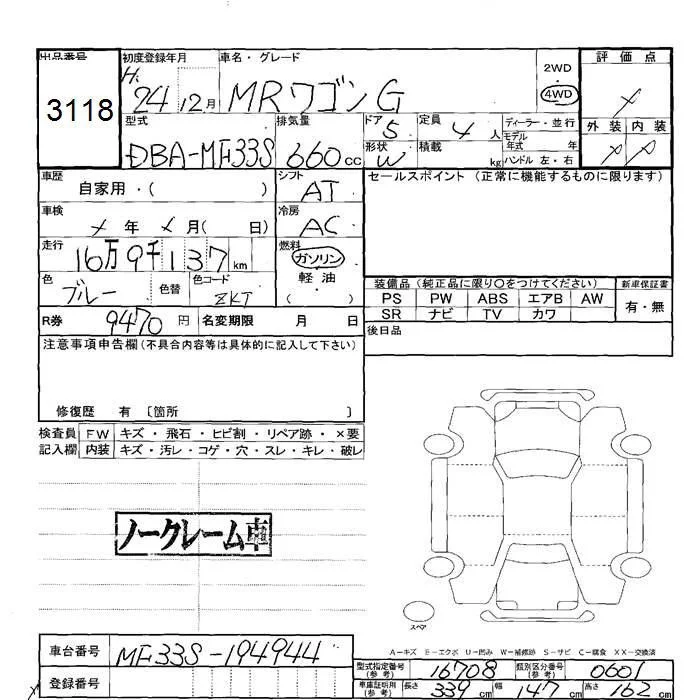 出品番号 初度登録年月 車名・グレード 評価点
3118 H. 24 12月 MRワゴン G 2WD ・ 4WD ×
型式 排気量 ドア 5 定員 4人 ディーラー・並行 外装 内装
DBA-MF33S 660cc 形状 W 積載 kg モデル年式 年 ハンドル 左・右 × ×
車歴 自家用・( ) シフト AT セールスポイント (正常に機能するものに限ります)
車検 ×年 ×月( 日) 冷房 AC
走行 16万9千137km 燃料 ガソリン
軽油
・( )
色 ブルー 色替 色コード ZKT
装備品 (純正品に限り○をつけてください) 新車保証書
PS PW ABS エアB AW 有・無
SR ナビ TV カワ
R券 9470円 名変期限 月 日 後日品
注意事項申告欄 (不具合内容等は具体的に記入して下さい)
修復歴 有 〔箇所 〕
検査員 FW キズ・飛石・ヒビ割・リペア跡・×要
記入欄 内装 キズ・汚レ・コゲ・穴・スレ・キレ・破レ
ノークレーム車
スペア
A-キズ E-エクボ U-凹み W-補修跡 S-サビ C-腐食 XX-交換済
車台番号 MF33S-194944
型式指定番号(参考) 16708 類別区分番号(参考) 0601
登録番号
車庫証明用(参考) 長さ 339cm 幅 147cm 高さ 162cm